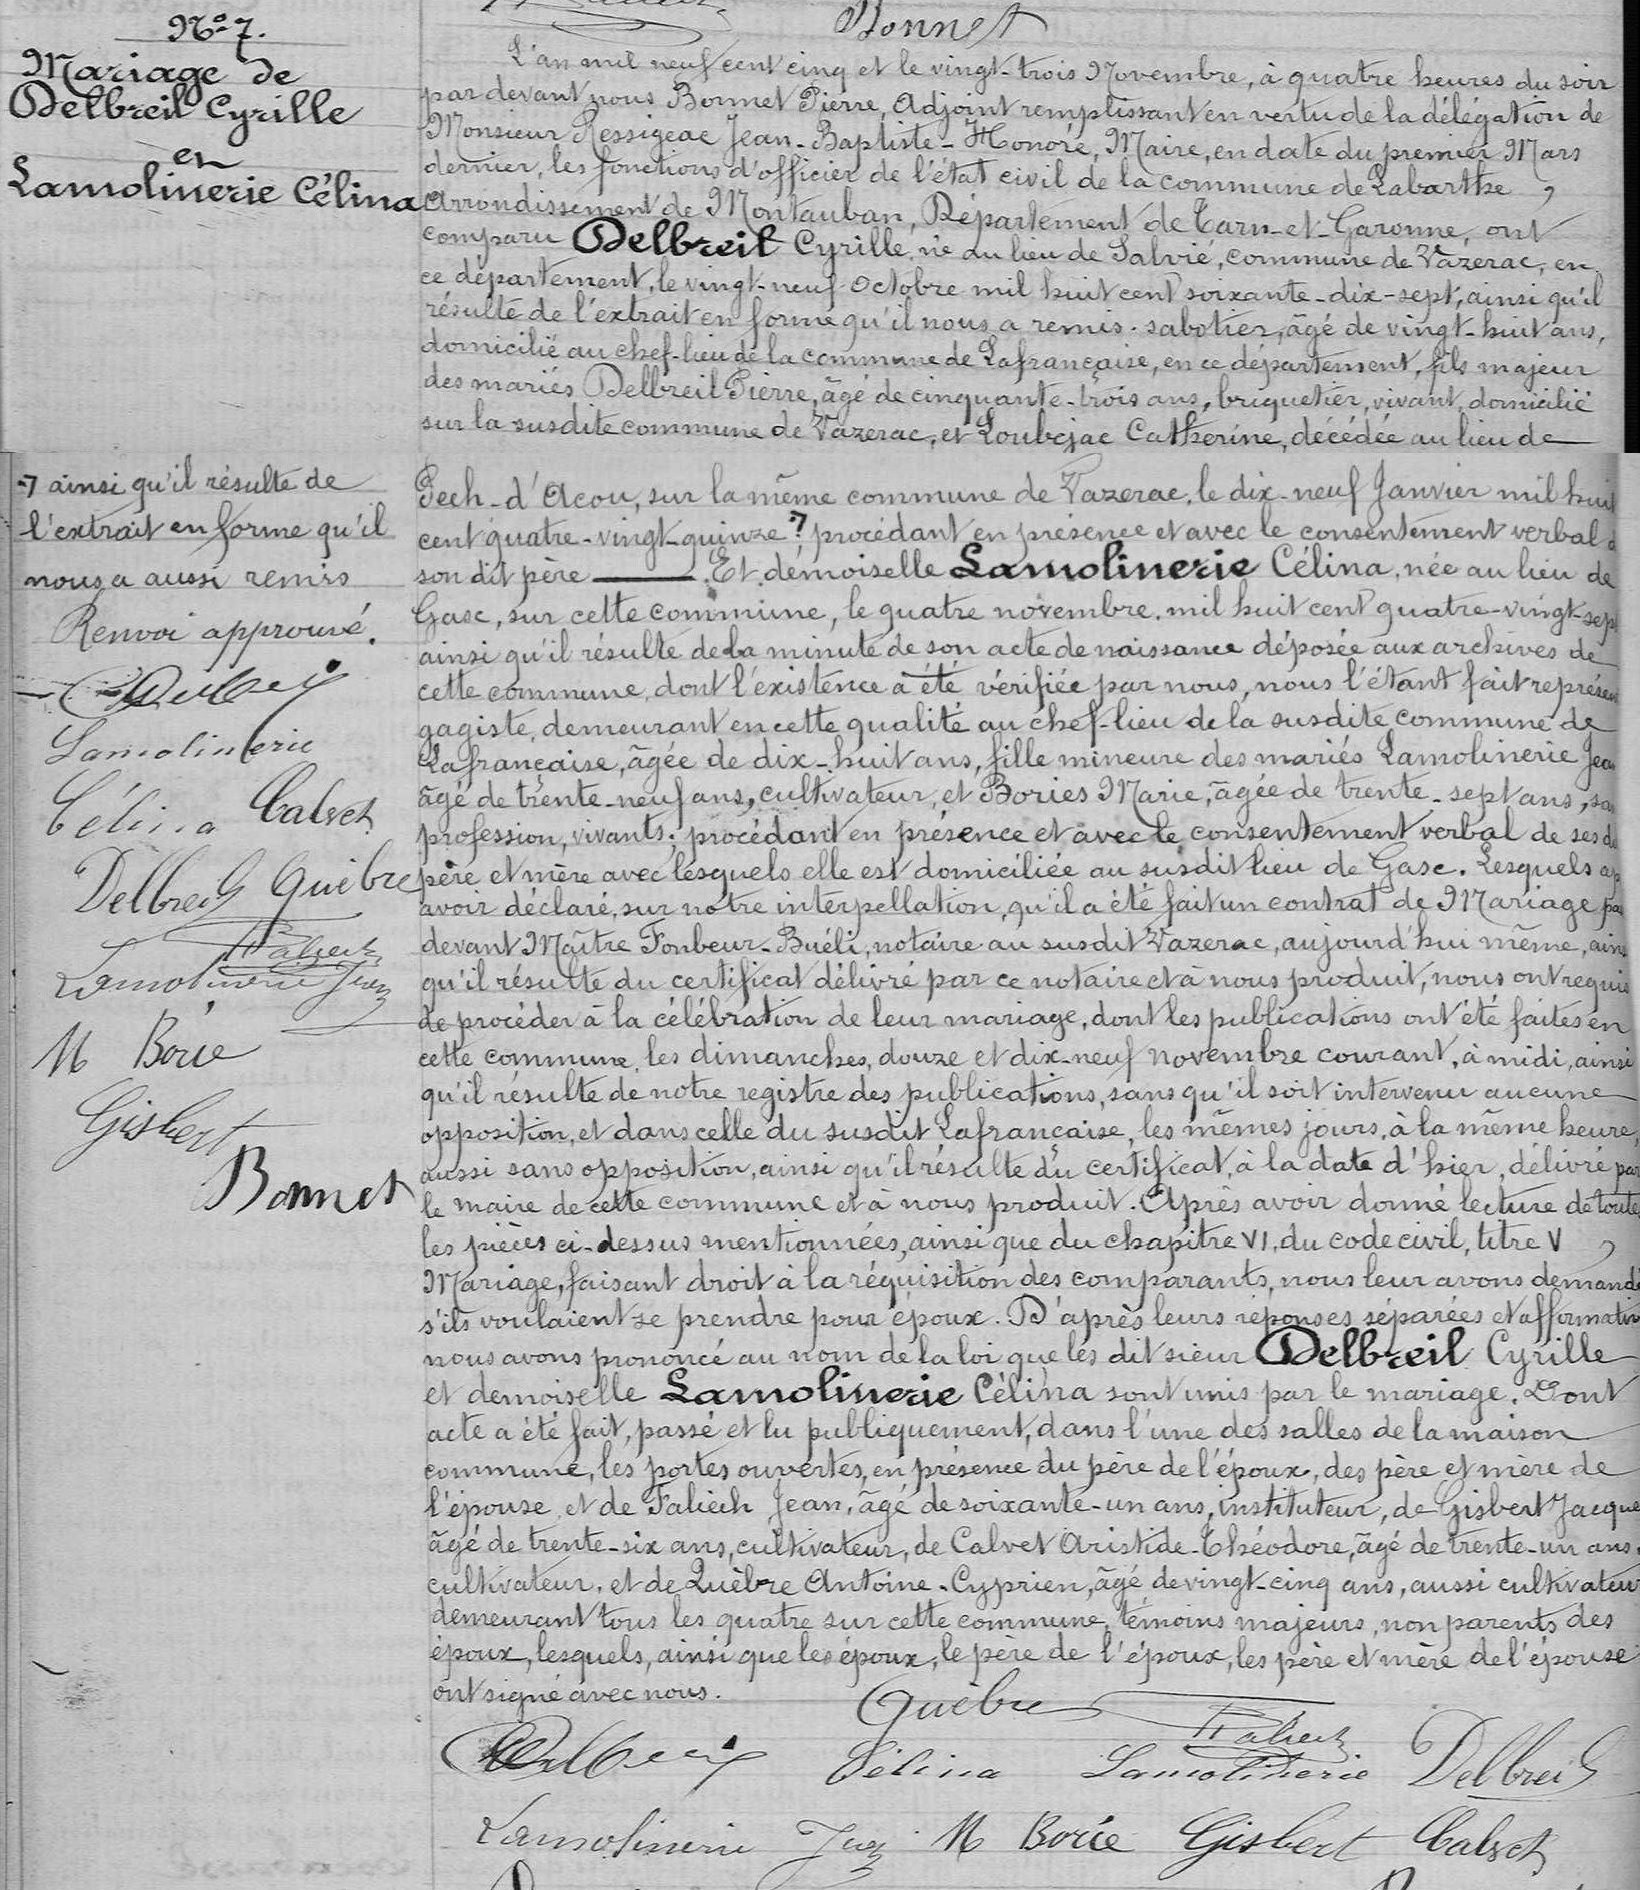 Bonnet
Nº 7.
Mariage de
Delbreil Cyrille
et
Lamolinerie Célina
L'an mil neuf cent cinq et le vingt-trois Novembre, à quatre heures du soir
par devant nous Bonnet Pierre, Adjoint remplissant en vertu de la délégation de
Monsieur Ressigeac Jean-Baptiste-Honoré, Maire, en date du premier Mars
dernier, les fonctions d'officier de l'état civil de la commune de Labarthe,
Arrondissement de Montauban, Département de Tarn-et-Garonne, ont
comparu Delbreil Cyrille, né au lieu de Salvié, commune de Vazerac, en
ce département, le vingt-neuf Octobre mil huit cent soixante-dix-sept, ainsi qu'il
résulte de l'extrait en forme qu'il nous a remis. sabotier, âgé de vingt-huit ans,
domicilié au chef-lieu de la commune de Lafrançaise, en ce département, fils majeur
des mariés Delbreil Pierre, âgé de cinquante-trois ans, briquetier, vivant, domicilié
sur la susdite commune de Vazerac, et Loubejac Catherine, décédée au lieu de
Pech-d'Acou, sur la même commune de Vazerac, le dix-neuf Janvier mil huit
cent quatre-vingt-quinze 7 procédant en présence et avec le consentement verbal d
son dit père. Et demoiselle Lamolinerie Célina, née au lieu de
Gasc, sur cette commune, le quatre novembre, mil huit cent quatre-vingt-sept
ainsi qu'il résulte de la minute de son acte de naissance déposée aux archives de
cette commune, dont l'existence a été vérifiée par nous, nous l'étant fait représen
gagiste, demeurant en cette qualité au chef-lieu de la susdite commune de
Lafrançaise, âgée de dix-huit ans, fille mineure des mariés Lamolinerie Jean
âgé de trente-neuf ans, cultivateur, et Bories Marie, âgée de trente-sept ans, san
profession, vivants; procédant en présence et avec le consentement verbal de ses d
père et mère avec lesquels elle est domiciliée au susdit lieu de Gasc. Lesquels ap
avoir déclaré, sur notre interpellation, qu'il a été fait un contrat de Mariage pa
devant Maître Fonbeur-Buéli, notaire au susdit Vazerac, aujourd'hui même, ains
qu'il résulte du certificat délivré par ce notaire et à nous produit, nous ont requis
de procéder à la célébration de leur mariage, dont les publications ont été faites en
cette commune, les dimanches, douze et dix-neuf novembre courant, à midi, ainsi
qu'il résulte de notre registre des publications, sans qu'il soit intervenu aucune
opposition, et dans celle du susdit Lafrançaise, les mêmes jours, à la même heure,
aussi sans opposition, ainsi qu'il résulte du certificat, à la date d'hier, délivré par
le maire de cette commune et à nous produit. Après avoir donné lecture de toute
les pièces ci-dessus mentionnées, ainsi que du chapitre VI, du code civil, titre V,
Mariage, faisant droit à la réquisition des comparants, nous leur avons demandé
s'ils voulaient se prendre pour époux. D'après leurs réponses séparées et affirmativ
nous avons prononcé au nom de la loi que les dit sieur Delbreil Cyrille
et demoiselle Lamolinerie Célina sont unis par le mariage. Dont
acte a été fait, passé et lu publiquement, dans l'une des salles de la maison
commune, les portes ouvertes, en présence du père de l'époux, des père et mère de
l'épouse et de Faliech Jean, âgé de soixante-un ans, instituteur, de Gisbert Jacque
âgé de trente-six ans, cultivateur, de Calvet Aristide-Théodore, âgé de trente-un ans,
cultivateur, et de Quèbre Antoine-Cyprien, âgé de vingt-cinq ans, aussi cultivateur
demeurant tous les quatre sur cette commune, témoins majeurs, non parents des
époux, lesquels, ainsi que les époux, le père de l'époux, les père et mère de l'épouse
ont signé avec nous.
7 ainsi qu'il résulte de
l'extrait en forme qu'il
nous a aussi remis
Renvoi approuvé.
Lamolinerie
Célina Calvet
Delbreil Quèbre
Faliech
Lamolinerie Jean
M Borie
Gisbert
Bonnet
Quèbre
Faliech
Delbreil Célina Lamolinerie Delbreil
Lamolinerie Jean M Borie Gisbert Calvet